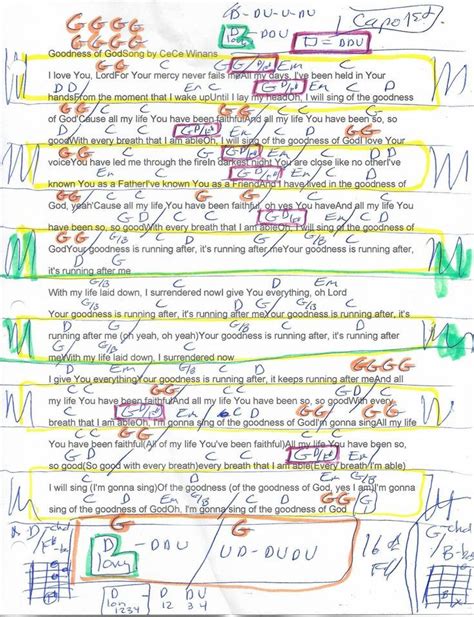 B-DU-U-DU
G G G G
D long -DDU
☐ = DDU
Capo 1st
Goodness of GodSong by CeCe Winans
G G C G G/D/F# Em
I love You, LordFor Your mercy never fails meAll my days, I've been held in Your
C D Em C D
handsFrom the moment that I wake upUntil I lay my headOh, I will sing of the goodness
G G G G C C
of God'Cause all my life You have been faithfulAnd all my life You have been so, so
G D/F# Em C D
goodWith every breath that I am ableOh, I will sing of the goodness of GodI love Your
C G G/D/F# Em C D
voiceYou have led me through the fireIn darkest night You are close like no otherI've
Em C D
known You as a FatherI've known You as a FriendAnd I have lived in the goodness of
G G C C
God, yeah'Cause all my life You have been faithful, oh yes You haveAnd all my life You
G D/F# Em C D
have been so, so goodWith every breath that I am ableOh, I will sing of the goodness of
G G G/B C D
GodYour goodness is running after, it's running after meYour goodness is running after,
G
it's running after me
G/B C D Em
With my life laid down, I surrendered nowI give You everything, oh Lord
G/B C
Your goodness is running after, it's running after meYour goodness is running after, it's
D G G/B C
running after me (oh yeah, oh yeah)Your goodness is running after, it's running after
D G G/B C
meWith my life laid down, I surrendered now
D Em G G G G
I give You everythingYour goodness is running after, it keeps running after meAnd all
C C
my life You have been faithfulAnd all my life You have been so, so goodWith every
G D/F# Em C D G G
breath that I am ableOh, I'm gonna sing of the goodness of GodI'm gonna singAll my life
C C
You have been faithful(All of my life You've been faithful)All my life You have been so,
G D/F# Em
so good(So good with every breath)every breath that I am able(Every breath/I'm able)
C D Em C
I will sing (I'm gonna sing)Of the goodness (of the goodness of God, yes I am)I'm gonna
D Em C D G
sing of the goodness of GodOh, I'm gonna sing of the goodness of God
D-chd
G G
D long -DDU
UD-DUDU
G-chd